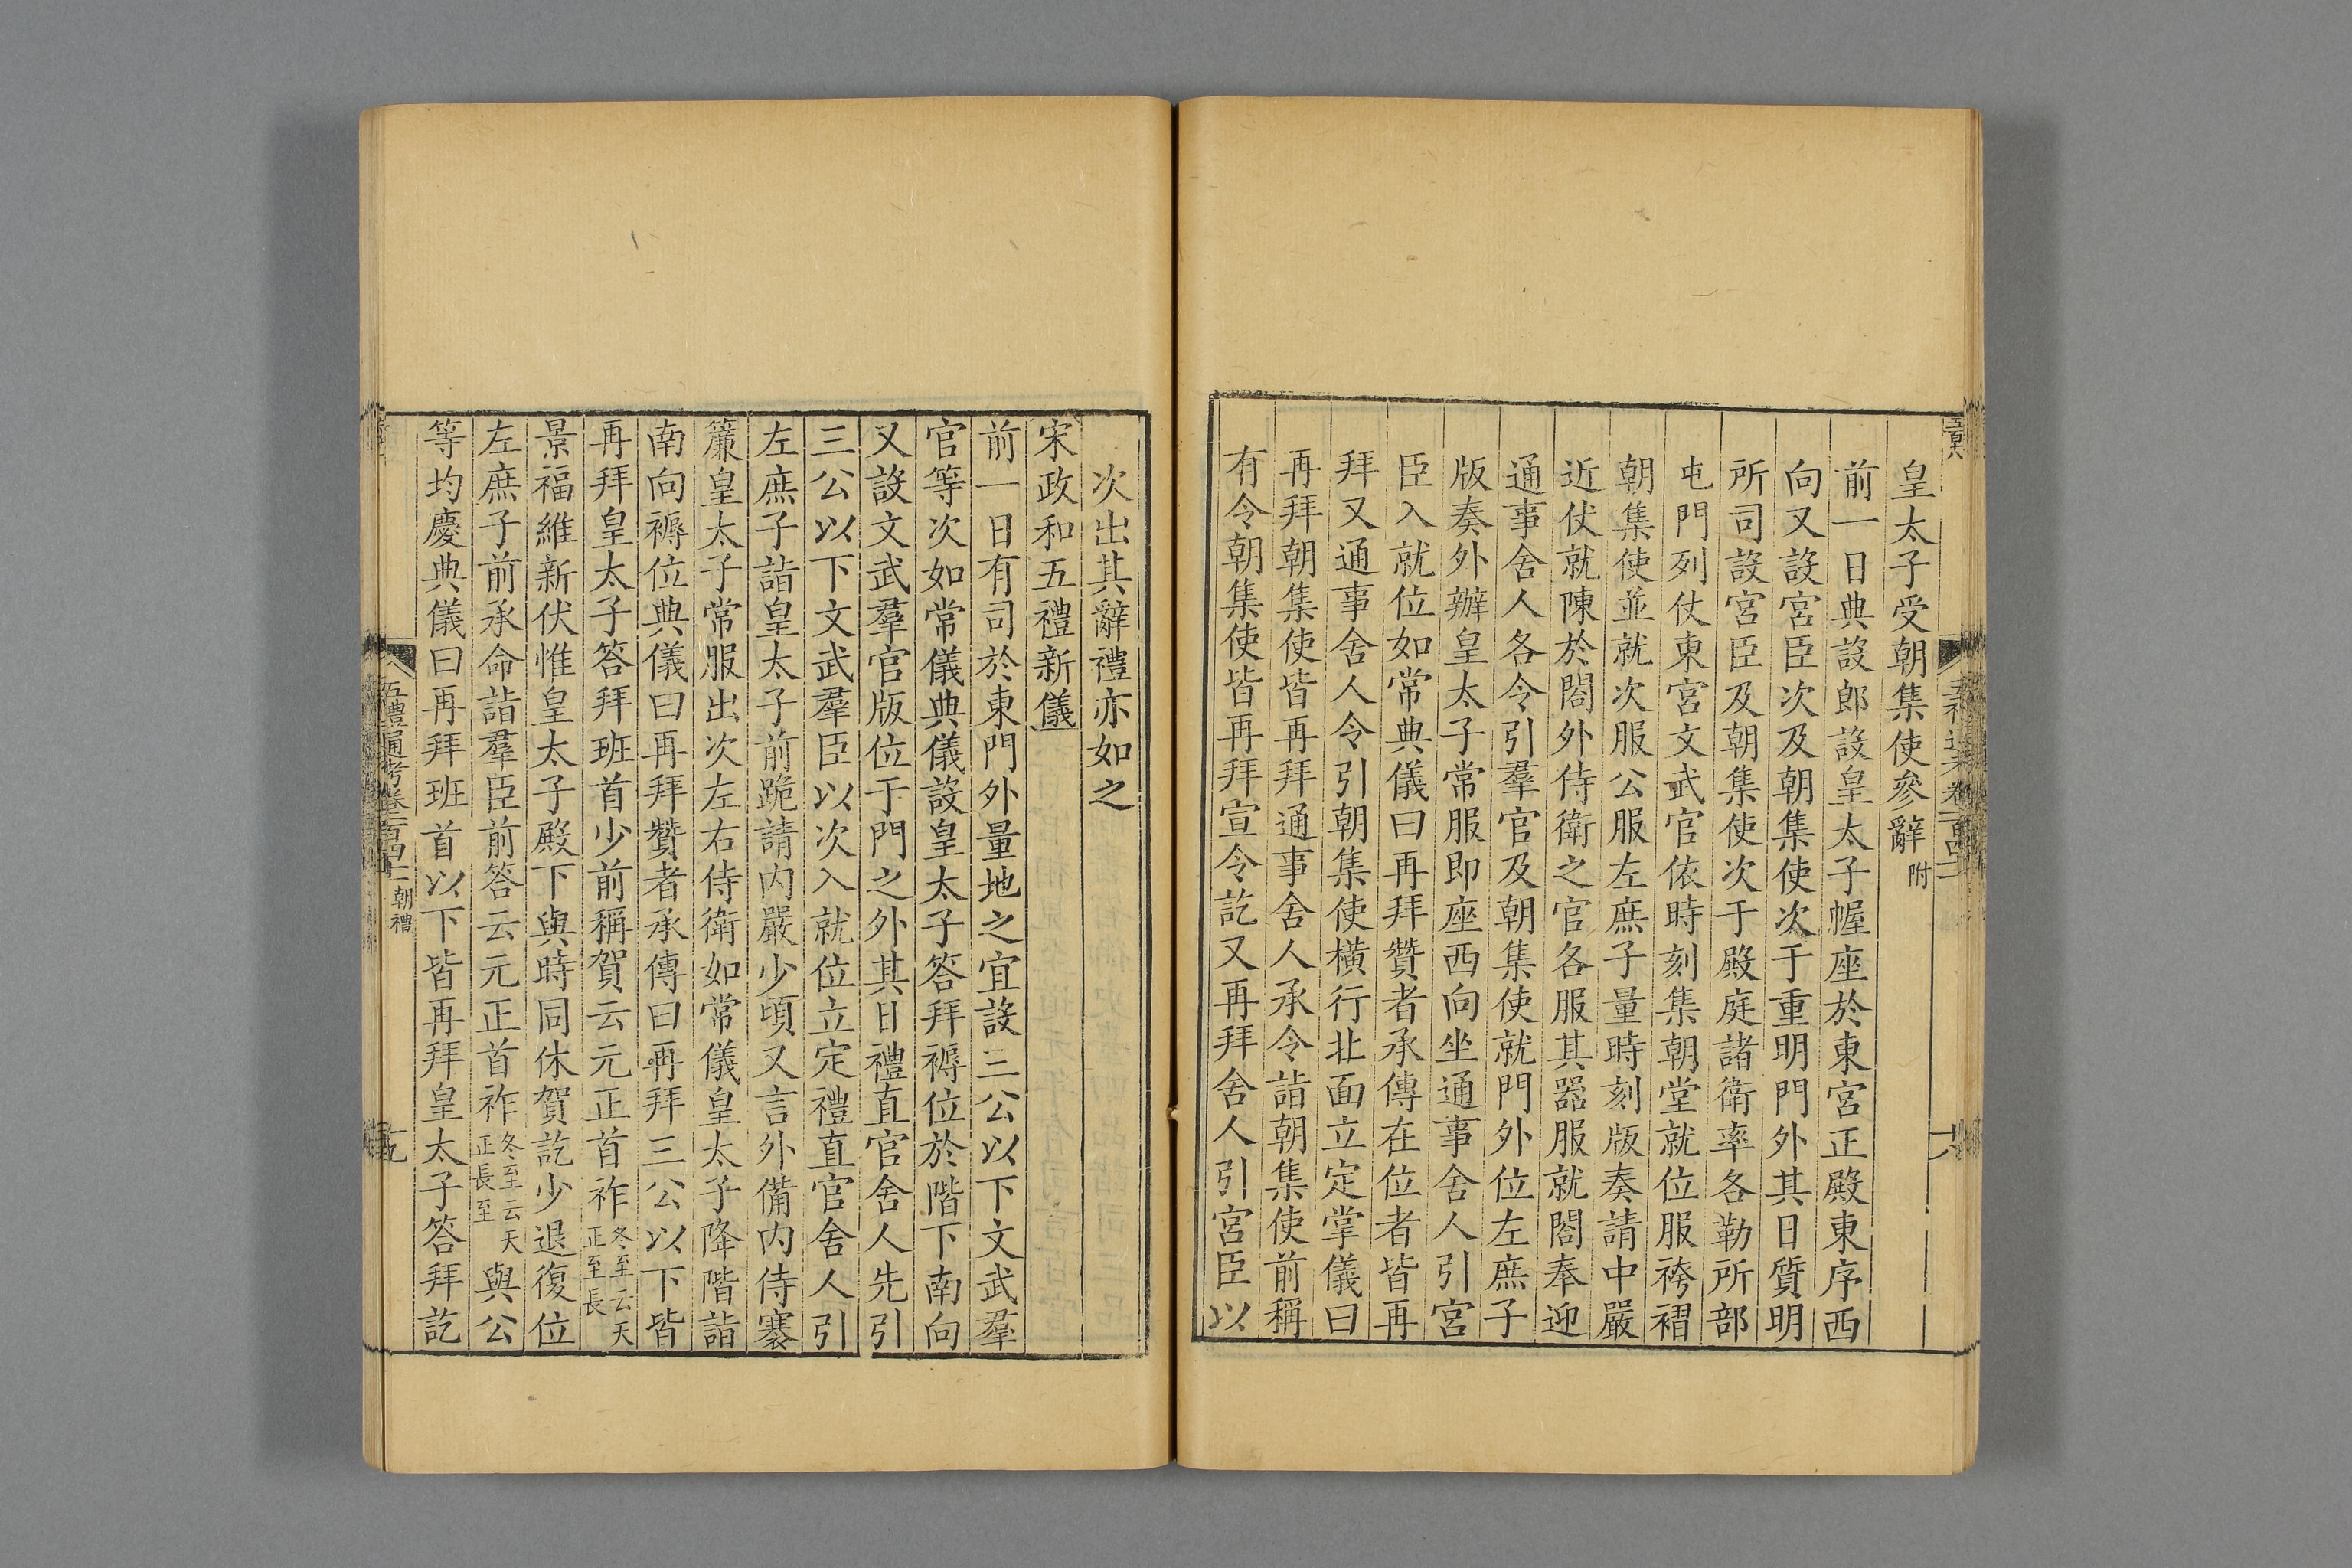 皇太子受朝集使參辭附
前一日典設郎設皇太子幄座於東宮正殿東序西
向又設宮臣次及朝集使次于重明門外其日質明
所司設宮臣及朝集使次于殿庭諸衛率各勒所部
屯門列仗東宮文武官依時刻集朝堂就位服袴褶
朝集使並就次服公服左庶子量時刻版奏請中嚴
近仗就陳於閤外侍衛之官各服其器服就閤奉迎
通事舍人各令引羣官及朝集使就門外位左庶子
版奏外辦皇太子常服即座西向坐通事舍人引宮
臣入就位如常典儀曰再拜贊者承傳在位者皆再
拜又通事舍人令引朝集使橫行北面立定掌儀曰
再拜朝集使皆再拜通事舍人承令詣朝集使前稱
有令朝集使皆再拜宣令訖又再拜舍人引宮臣以
次出其辭禮亦如之
宋政和五禮新儀
前一日有司於東門外量地之宜設三公以下文武羣
官等次如常儀典儀設皇太子答拜褥位於階下南向
又設文武羣官版位于門之外其日禮直官舍人先引
三公以下文武羣臣以次入就位立定禮直官舍人引
左庶子詣皇太子前跪請內嚴少頃又言外備內侍褰
簾皇太子常服出次左右侍衛如常儀皇太子降階詣
南向褥位典儀曰再拜贊者承傳曰再拜三公以下皆
再拜皇太子答拜班首少前稱賀云元正首祚冬至云天正長至
景福維新伏惟皇太子殿下與時同休賀訖少退復位
左庶子前承命詣羣臣前答云元正首祚冬至云天正長至與公
等均慶典儀曰再拜班首以下皆再拜皇太子答拜訖
五禮通考卷一百四十一 朝禮